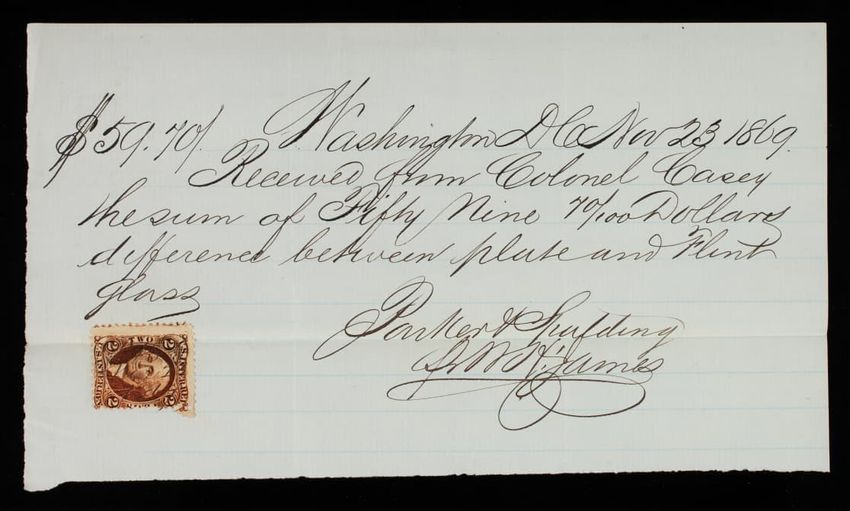 $59.70/. Washington DC Nov 23 1869.
Received from Colonel Casey
the sum of Fifty Nine 70/100 Dollars
difference between plate and Flint
glass
Parker & Spalding
James
TWO
2 2
2 2